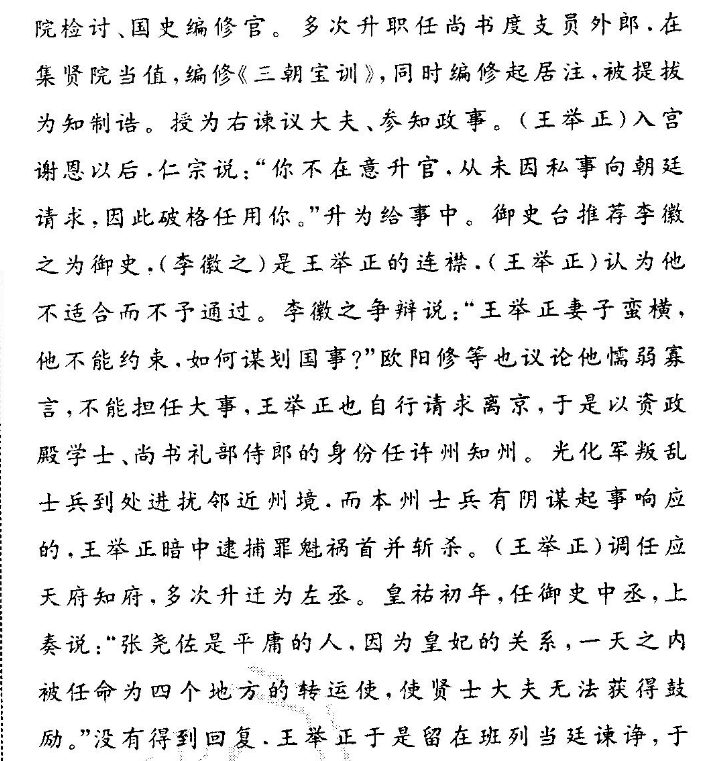 院检讨、国史编修官。多次升职任尚书度支员外郎,在
集贤院当值,编修《三朝宝训》,同时编修起居注,被提拔
为知制诰。授为右谏议大夫、参知政事。(王举正)入宫
谢恩以后,仁宗说:“你不在意升官,从未因私事向朝廷
请求,因此破格任用你。”升为给事中。御史台推荐李徽
之为御史,(李徽之)是王举正的连襟,(王举正)认为他
不适合而不予通过。李徽之争辩说:“王举正妻子蛮横,
他不能约束,如何谋划国事?”欧阳修等也议论他懦弱寡
言,不能担任大事,王举正也自行请求离京,于是以资政
殿学士、尚书礼部侍郎的身份任许州知州。光化军叛乱
士兵到处进扰邻近州境,而本州士兵有阴谋起事响应
的,王举正暗中逮捕罪魁祸首并斩杀。(王举正)调任应
天府知府,多次升迁为左丞。皇祐初年,任御史中丞,上
奏说:“张尧佐是平庸的人,因为皇妃的关系,一天之内
被任命为四个地方的转运使,使贤士大夫无法获得鼓
励。”没有得到回复,王举正于是留在班列当廷谏诤,于